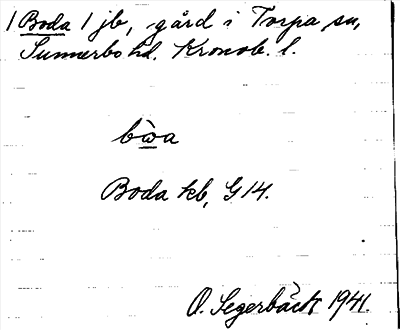 1 Boda 1 jb, gård i Torpa sn,
Sunnerbo hd. Kronob. l.
bὼa
Boda kb, G 14.
O. Segerbäck 1941.